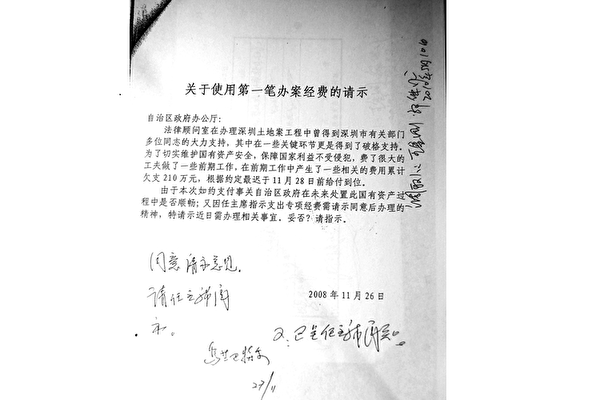 关于使用第一笔办案经费的请示
自治区政府办公厅：
法律顾问室在办理深圳土地案工程中曾得到深圳市有关部门
多位同志的大力支持，其中在一些关键环节更是得到了破格支持。
为了切实维护国有资产安全，保障国家利益不受侵犯，费了很大的
工夫做了一些前期工作，在前期工作中产生了一些相关的费用累计
欠支 210 万元，根据约定最迟于 11 月 28 日前给付到位。
由于本次如约支付事关自治区政府在未来处置此国有资产
程中是否顺畅；又因任主席指示支出专项经费需请示同意后办理的
精神，特请示近日需办理相关事宜，妥否？请指示。
2008 年 11 月 26 日
同意请示意见。
请任主席阅
示。
27/11